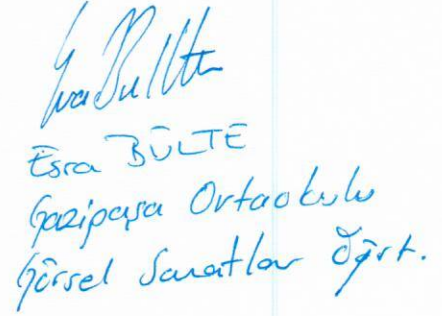 Esra BÜLTE
Gazipaşa Ortaokulu
Görsel Sanatlar Öğrt.